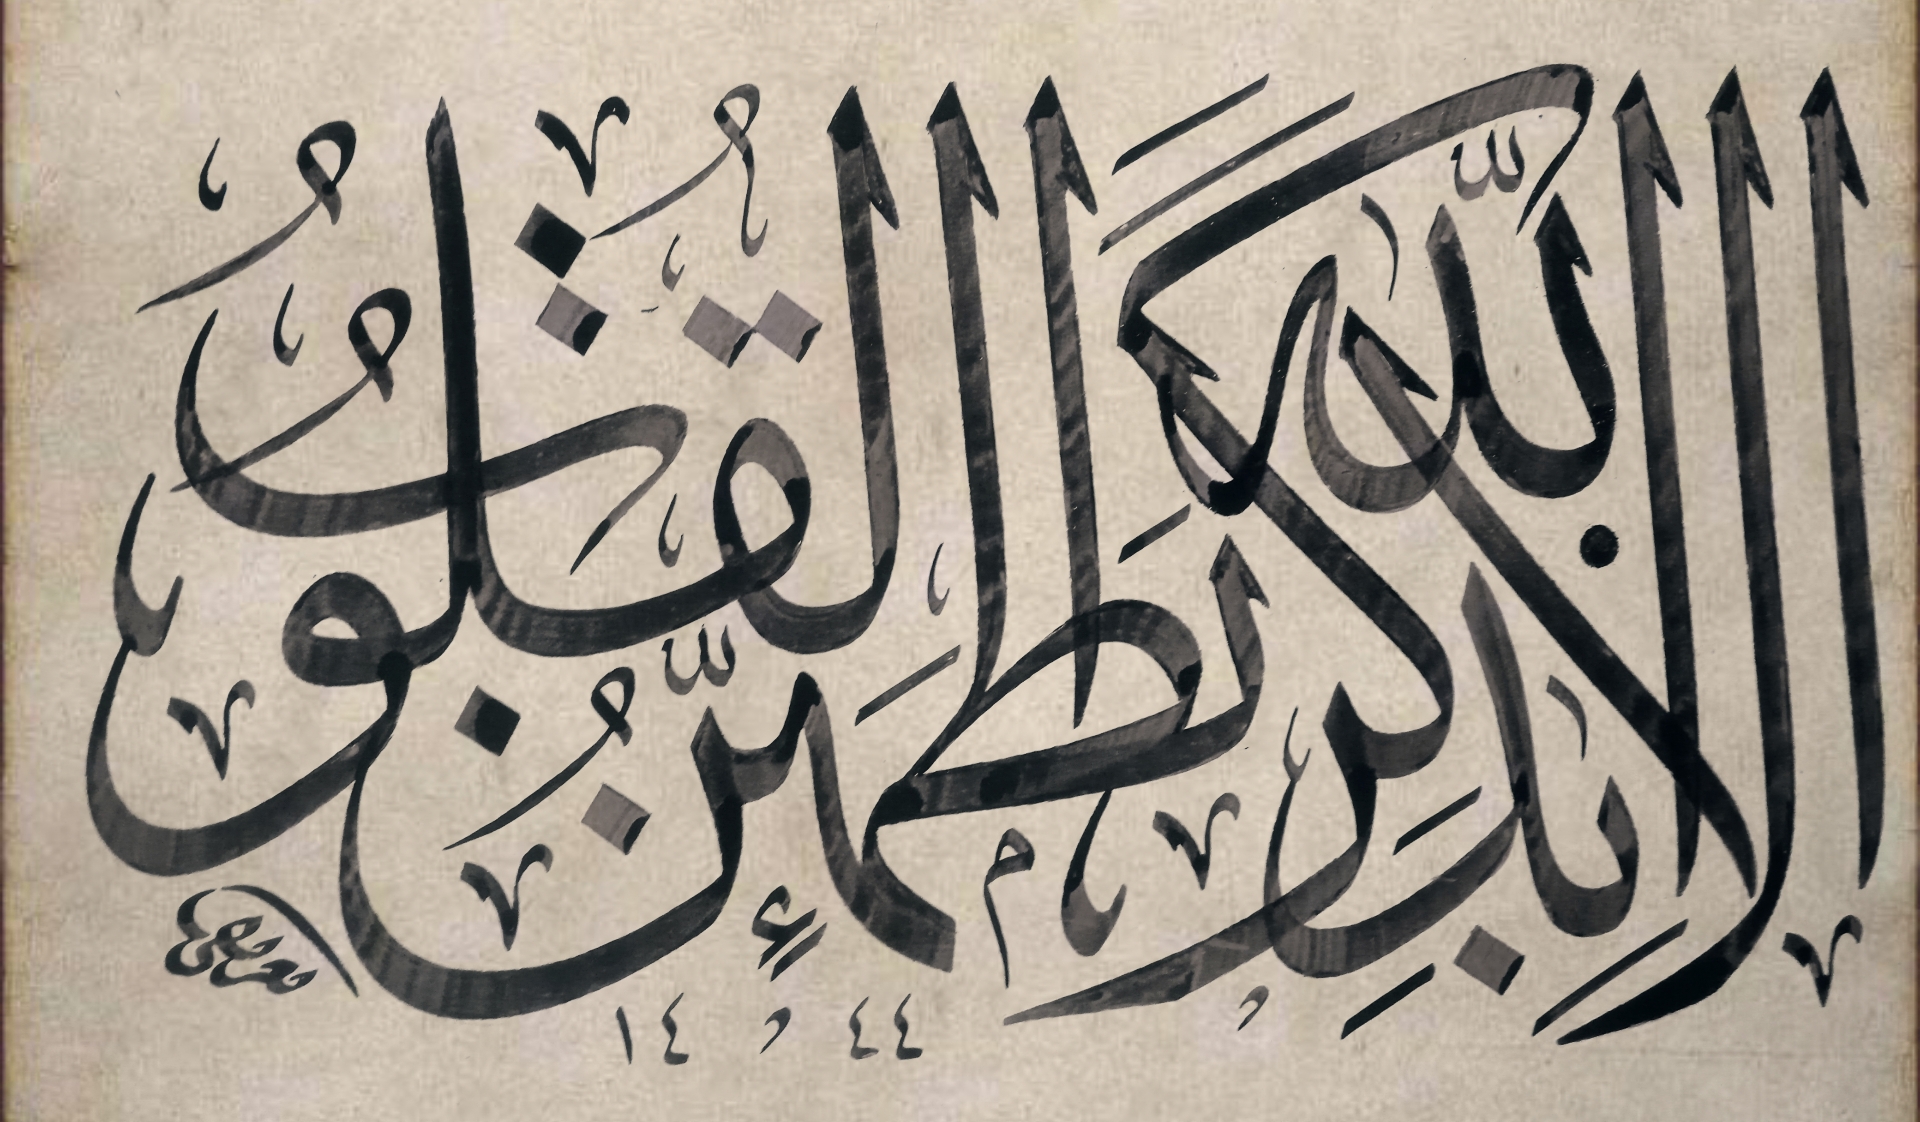 أَلَا بِذِكْرِ اللّٰهِ تَطْمَئِنُّ الْقُلُوبُ
١٤ ٤٤